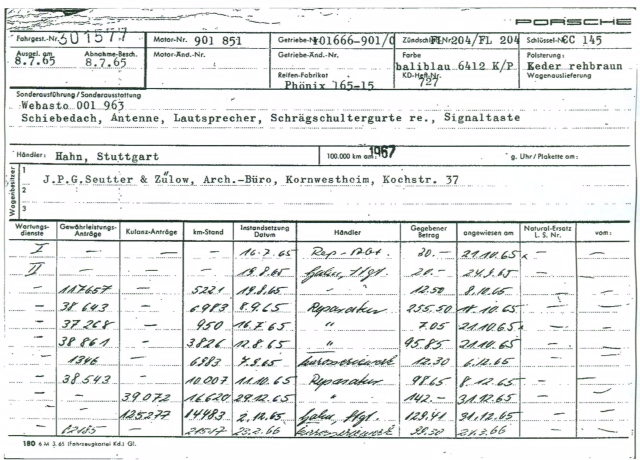 PORSCHE
Fahrgest.-Nr. 301577 Motor-Nr. 901 851 Getriebe-Nr. 101666-901/0 Zündschl.-Nr. FL 204/FL 204 Schlüssel-Nr. CC 145
Ausgel. am Abnahme-Besch. Motor-Änd.-Nr. Getriebe-Änd.-Nr. Farbe Polsterung:
8.7.65 8.7.65 baliblau 6412 K/P Keder rehbraun
Reifen-Fabrikat KD-Heft-Nr. Wagenauslieferung
Phönix 165-15 727
Sonderausführung / Sonderausstattung
Webasto 001 963
Schiebedach, Antenne, Lautsprecher, Schrägschultergurte re., Signaltaste
Händler: Hahn, Stuttgart 100.000 km am: 1967 g. Uhr / Plakette am:
Wagenbesitzer
1 J.P.G.Seutter & Zülow, Arch.-Büro, Kornwestheim, Kochstr. 37
2
3
Wartungsdienste Gewährleistungs-Anträge Kulanz-Anträge km-Stand Instandsetzung Datum Händler Gegebener Betrag angewiesen am Natural-Ersatz L. S. Nr. vom:
I — — — 16.7.65 Rep.-Abt. 20.— 21.10.65 — —
II — — — 19.8.65 Hahn, Stgt. 20.— 24.9.65 — —
— 117657 — 5221 19.8.65 " 12.50 8.10.65 — —
— 38 643 — 6983 8.9.65 Reparatur 255.50 18.10.65 — —
— 37 268 — 950 16.7.65 " 7.05 21.10.65 — —
— 38 861 — 3826 12.8.65 " 95.85 21.10.65 — —
— 1346 — 6983 7.9.65 Karosseriewerk 12.30 6.12.65 — —
— 38 543 — 10007 11.10.65 Reparatur 98.65 8.12.65 — —
— — 39 072 16620 29.12.65 " 142.— 31.12.65 — —
— — 125277 14483 2.12.65 Hahn, Stgt. 129.41 31.12.65 — —
— — 66 Karosseriewerk 21.3.66 — —
180 6 M 3.65 (Fahrzeugkartei Kd.) Gl.